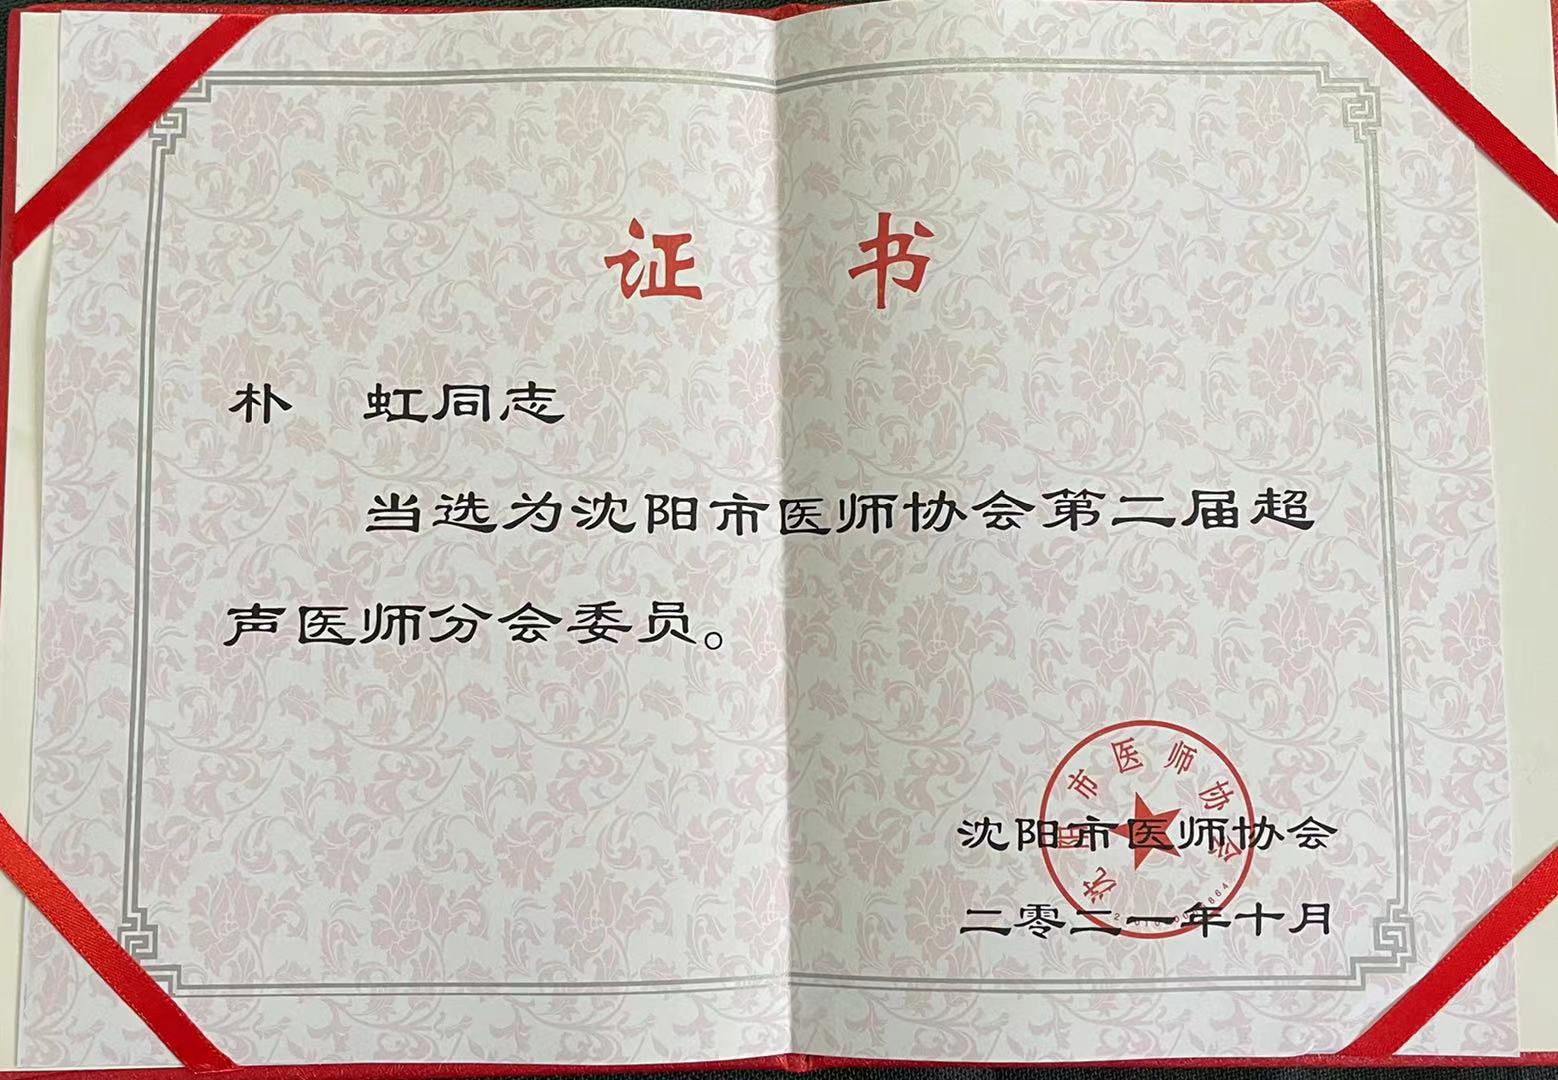 证 书
朴 虹同志
当选为沈阳市医师协会第二届超
声医师分会委员。
沈阳市医师协会
沈阳市医师协会
二零二一年十月